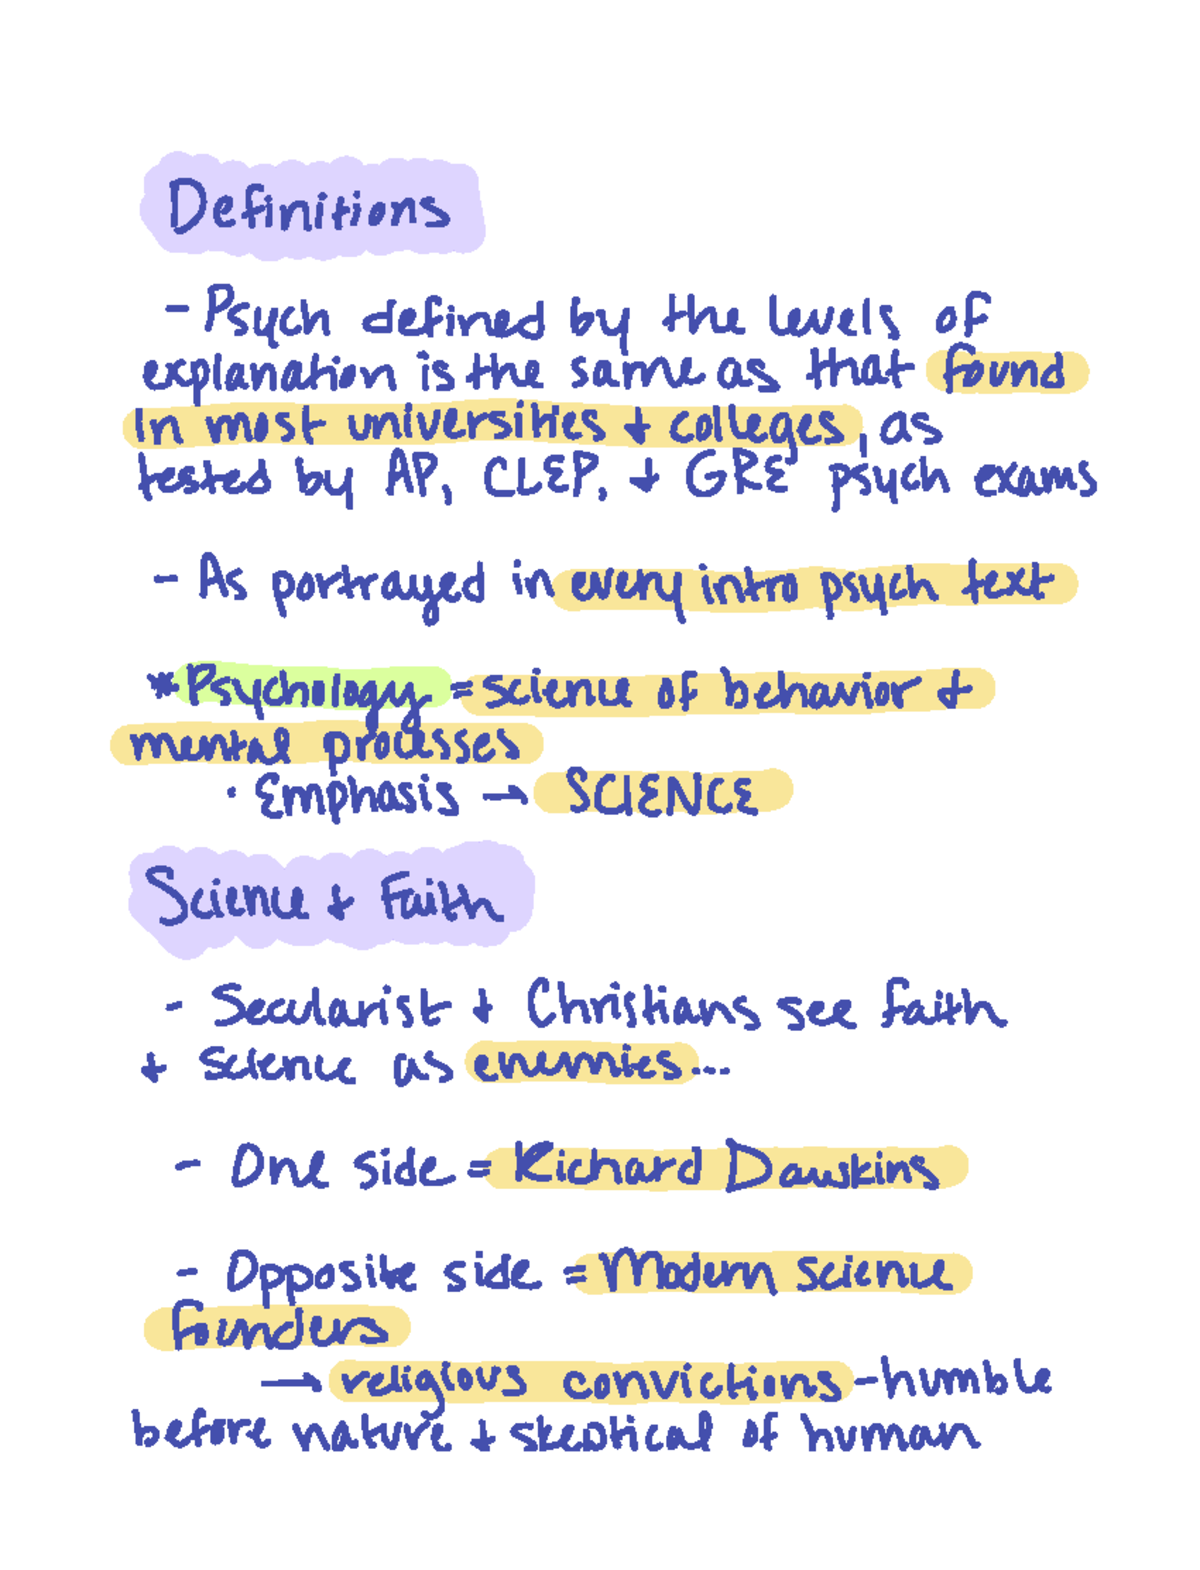 Definitions
- Psych defined by the levels of
explanation is the same as that found
in most universities + colleges, as
tested by AP, CLEP, + GRE psych exams
- As portrayed in every intro psych text
*Psychology = science of behavior +
mental processes
· Emphasis → SCIENCE
Science + Faith
- Secularist + Christians see faith
+ science as enemies...
- One side = Richard Dawkins
- Opposite side = Modern science
founders
→ religious convictions - humble
before nature + skeptical of human